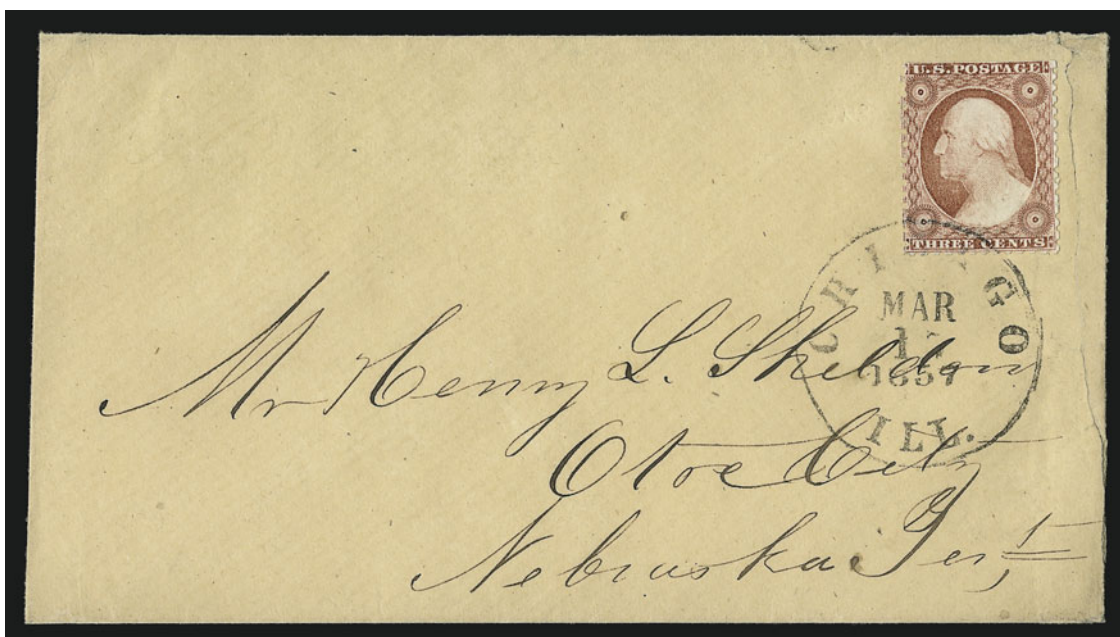 U.S. POSTAGE
THREE CENTS
CHICAGO
MAR
1857
ILL.
Mr Henry L. Sheldon
Otoe City
Nebraska Ter,t